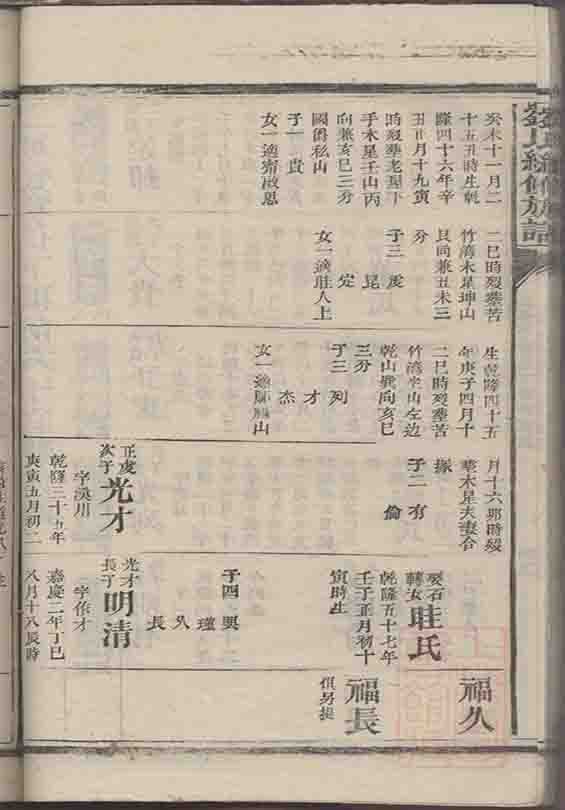 劉氏續修族譜
癸未十一月二
十五丑時生乾
隆四十六年辛
丑正月十九寅
時殁葬老屋下
手水星壬山丙
向兼亥巳三分
國爵私山
子一 貴
女一適
二巳時殁葬苦
竹湾木星坤山
艮向兼丑未三
分
子三 宸
昆
定
女一適
人上
生乾隆四十五
年庚子四月十
二巳時殁葬苦
竹湾坐山左边
乾山巽向亥巳
三分
子三 列
才
杰
女一適
山
月十六卯時殁
葬木星夫妻合
塚
子二 有
倫
正虔
次子
光才
字漢川
乾隆三十五年
庚寅五月初二
娶石
女
氏
乾隆五十七年
壬子正月初十
寅時生
子四 興
久
長
光才
長子
明清
字依才
嘉慶二年丁巳
八月十八辰時
福久
福長
俱另提